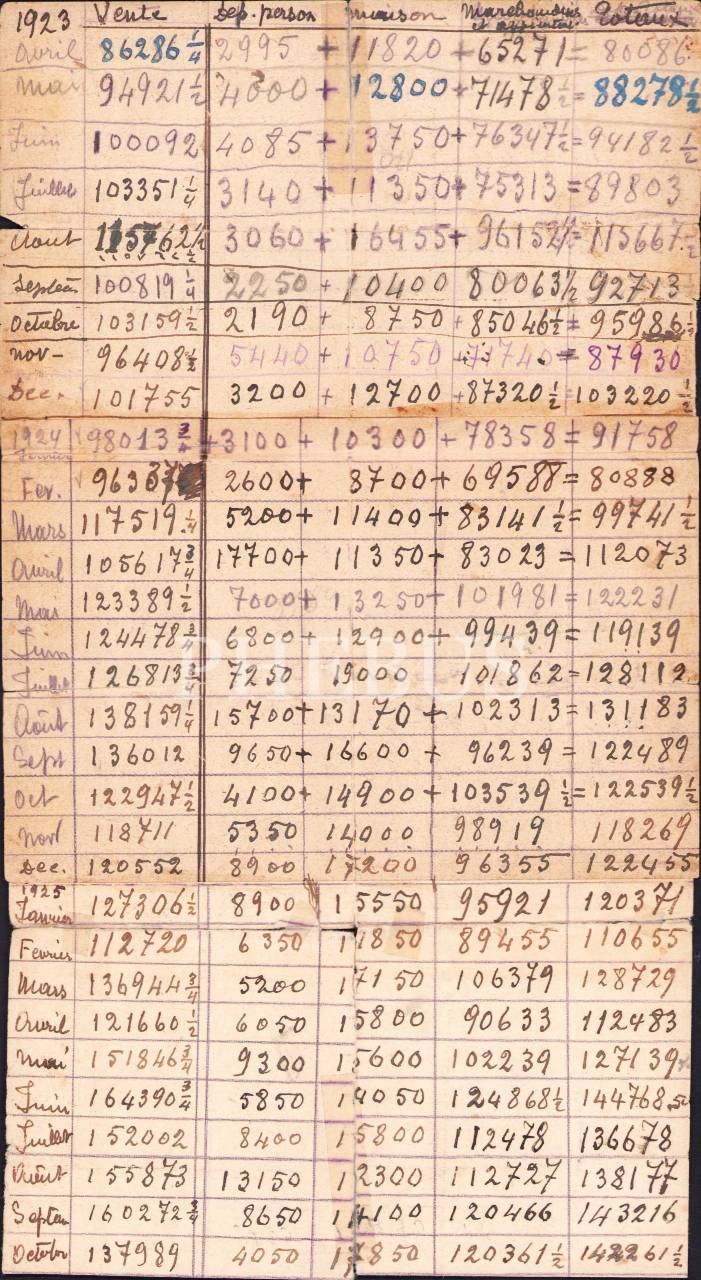 1923 Vente Dep. person maison Marchandises et appointe. Totaux
Avril 86286 1/4 2995 + 11820 + 65271 = 80086
Mai 94921 1/2 4000 + 12800 + 71478 1/2 = 88278 1/2
Juin 100092 4085 + 13750 + 76347 1/2 = 94182 1/2
Juillet 103351 1/4 3140 + 11350 + 75313 = 89803
Aout 115762 1/2 3060 + 16455 + 96152 1/2 = 115667 1/2
Septem 100819 1/4 2250 + 10400 80063 1/2 92713
Octobre 103159 1/2 2190 + 8750 + 85046 1/2 = 95986 1/2
nov - 96408 1/2 5440 + 10750 + 71740 = 87930
Dec. 101755 3200 + 12700 + 87320 1/2 = 103220 1/2
1924 Janvier 98013 3/4 + 3100 + 10300 + 78358 = 91758
Fev. 2600 + 8700 + 69588 = 80888
Mars 117519 1/4 5200 + 11400 + 83141 1/2 = 99741 1/2
Avril 105617 3/4 17700 + 11350 + 83023 = 112073
Mai 123389 1/2 7000 + 13250 + 101981 = 122231
Juin 124478 3/4 6800 + 12900 + 99439 = 119139
Juillet 126813 3/4 7250 19000 101862 = 128112
Août 138159 1/4 15700 + 13170 + 102313 = 131183
Sept 136012 9650 + 16600 + 96239 = 122489
Oct 122947 1/2 4100 + 14900 + 103539 1/2 = 122539 1/2
Nov 118711 5350 14000 98919 118269
Dec. 120552 8900 17200 96355 122455
1925
Janvier 127306 1/2 8900 15550 95921 120371
Fevrier 112720 6350 11850 89455 110655
Mars 136944 3/4 5200 17150 106379 128729
Avril 121660 1/2 6050 15800 90633 112483
Mai 151846 3/4 9300 15600 102239 127139
Juin 164390 3/4 5850 14050 124868 1/2 144768,50
Juillet 152002 8400 15800 112478 136678
Août 155873 13150 12300 112727 138177
Septem 160272 3/4 8650 14100 120466 143216
Octobre 137989 4050 17850 120361 1/2 142261 1/2